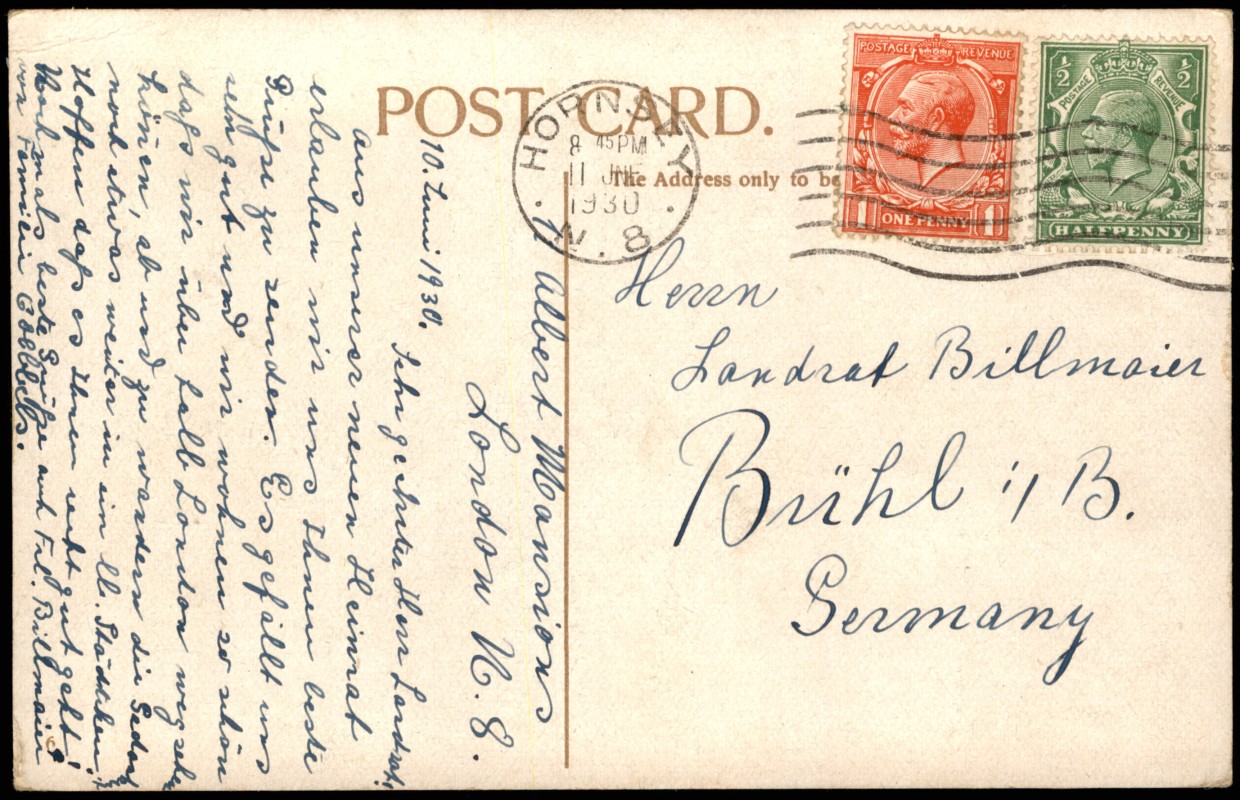 POST CARD.
The Address only to be
HORNSEY
8 45 PM
11 JNE
1930
N. 8
POSTAGE REVENUE
1 ONE PENNY 1
½ ½
POSTAGE REVENUE
HALFPENNY
Herrn
Landrat Billmaier
Bühl i/B.
Germany
Albert Mansions
London N. 8.
10. Juni 1930.
Sehr geehrter Herr Landrat,
Aus unserer neuen Heimat
erlauben wir uns Ihnen beste
Grüsse zu senden. Es gefällt uns
sehr gut und wir wohnen so schön
dass wir über halb London weg sehen
können, ab und zu wandern die
noch etwas weiter in ein Städtchen
Hoffen dass es Ihnen recht gut geht!
Nochmals beste Grüsse auch Frl. Billmaier
von Familie